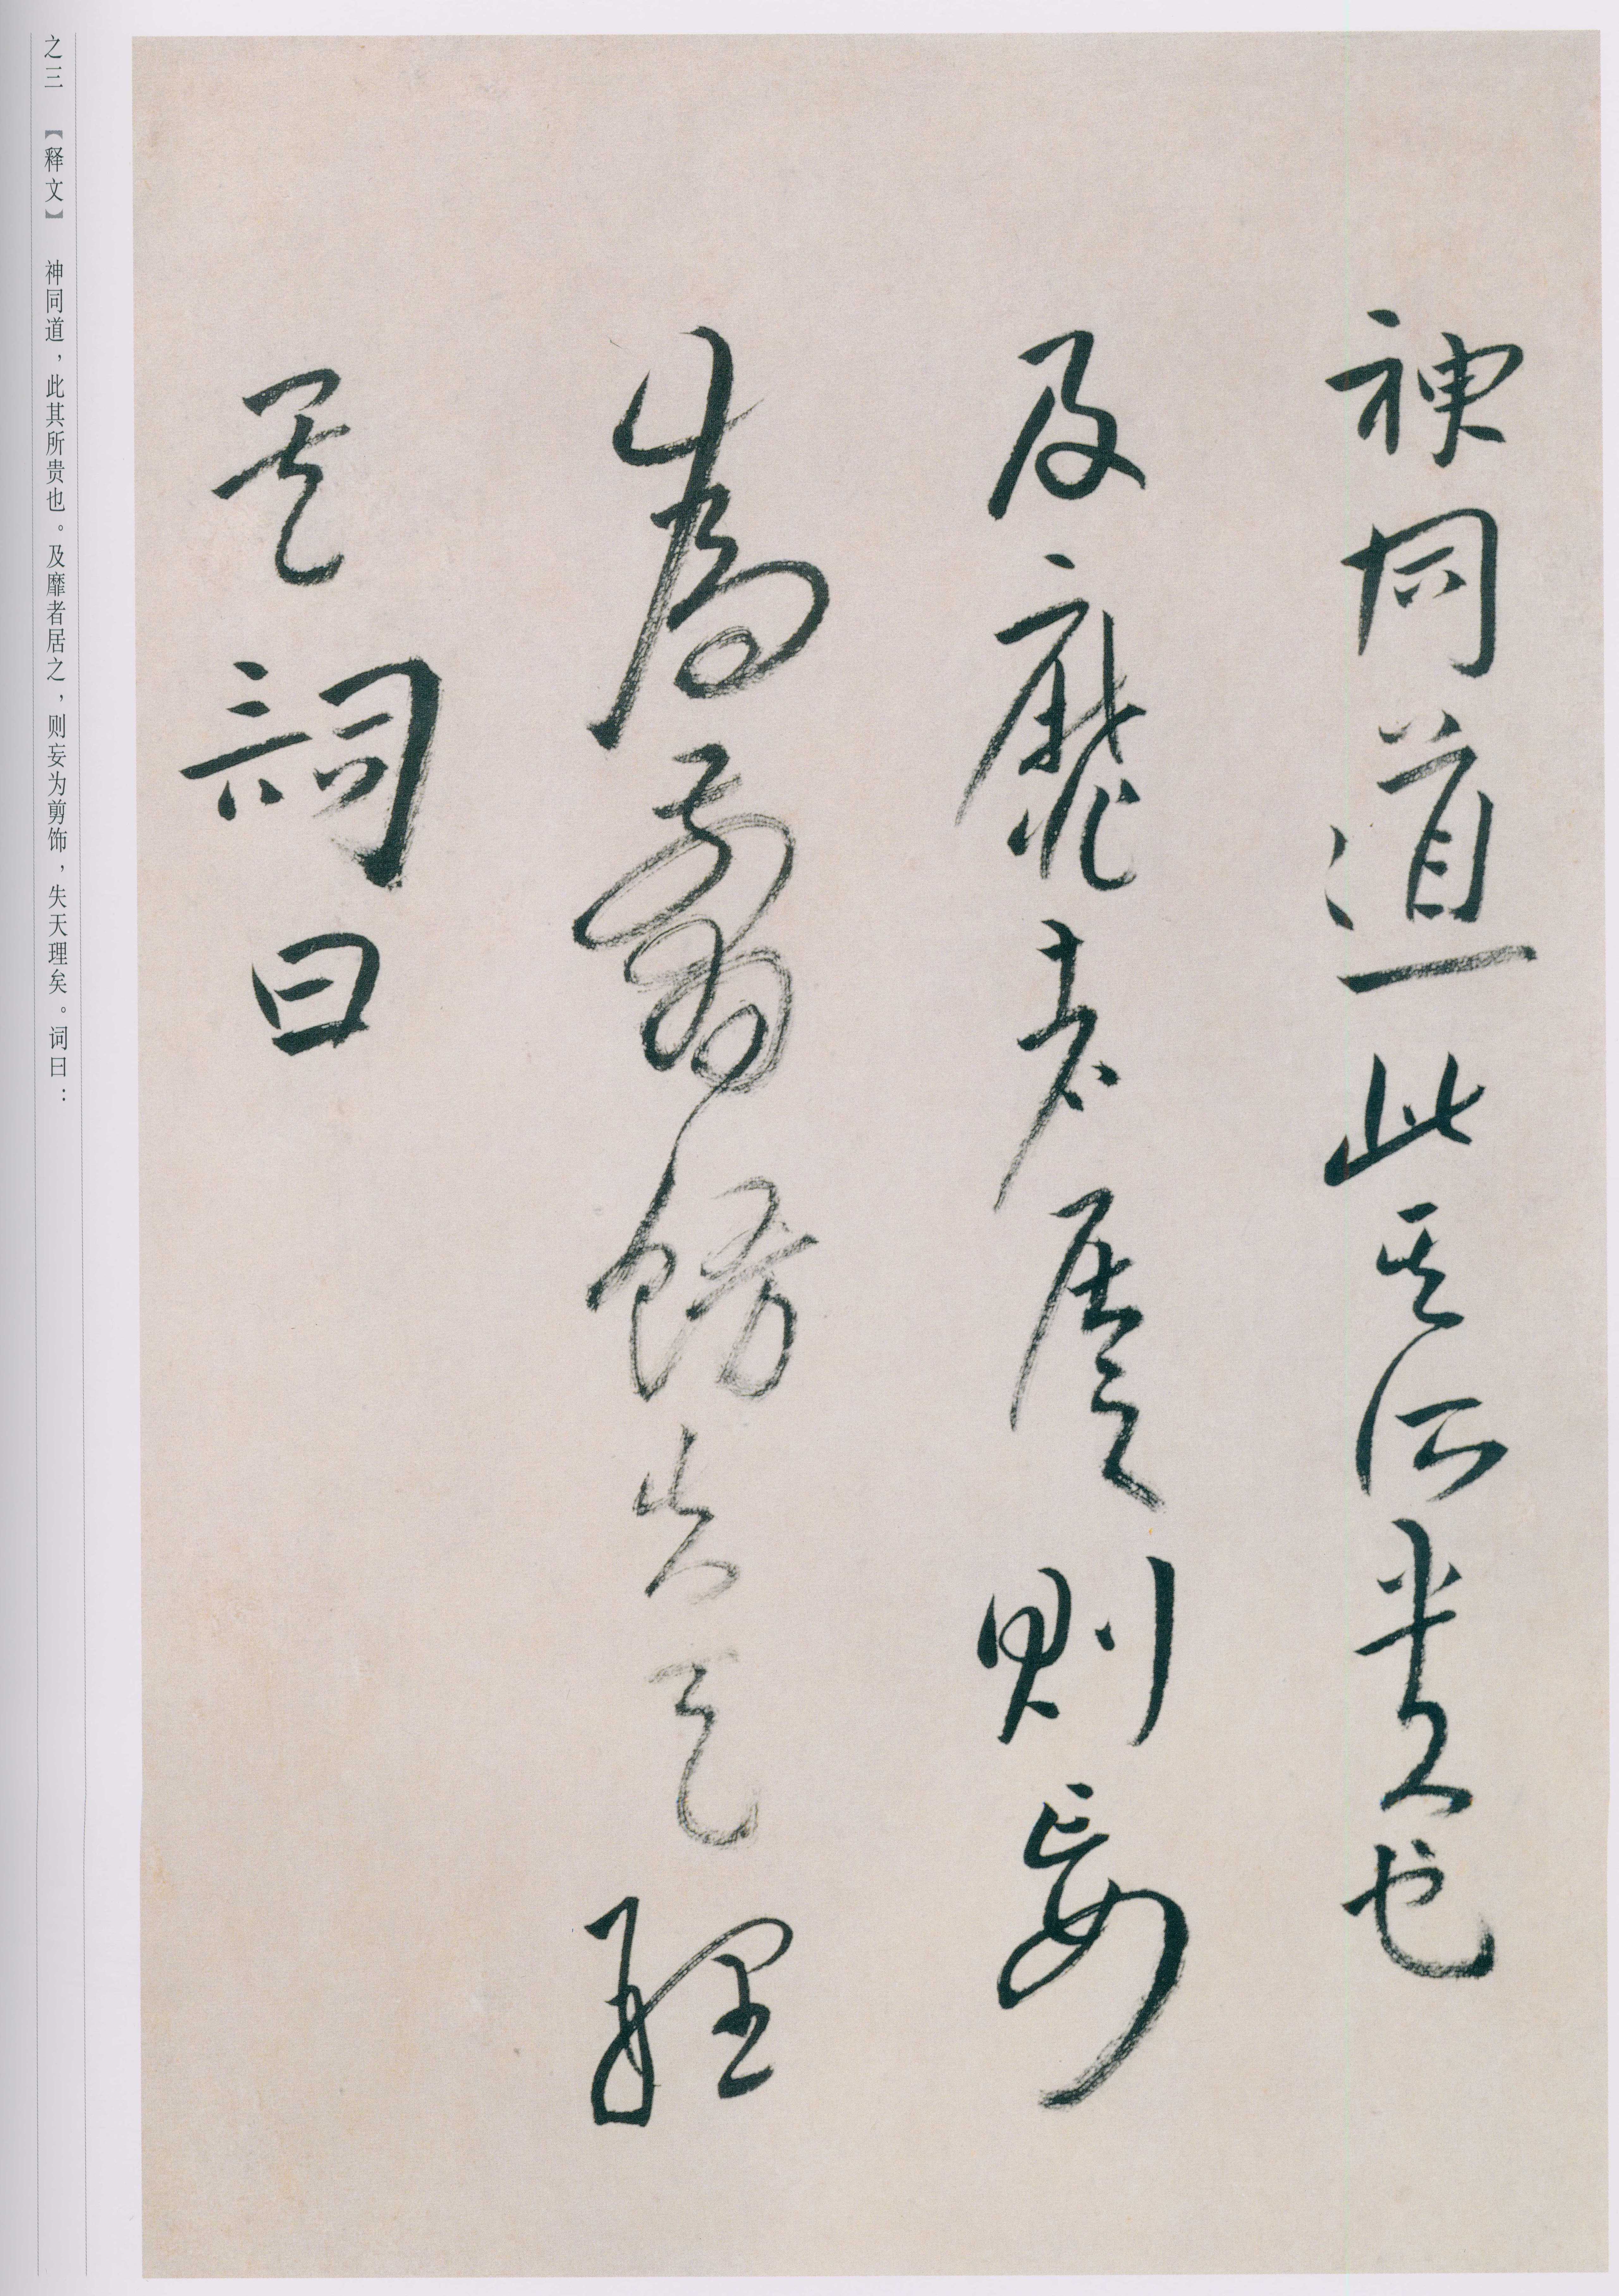 神同道此其所貴也
及靡者居之則妄
為翦飾失天理
矣詞曰
之三 【释文】 神同道，此其所贵也。及靡者居之，则妄为剪饰，失天理矣。词曰：